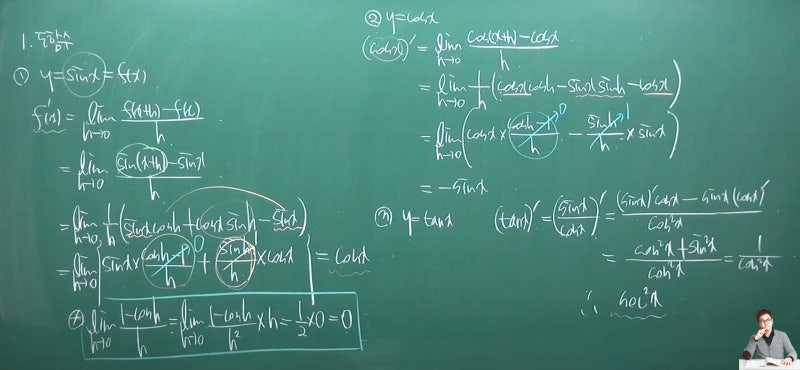 1. 도함수
① y=sinx=f(x)
f'(x)=lim_{h→0} (f(x+h)-f(x))/h
=lim_{h→0} (sin(x+h)-sinx)/h
=lim_{h→0} 1/h (sinx cosh+cosx sinh-sinx)
=lim_{h→0} (sinx×(cosh-1)/h 0 + sinh/h ×cosx)=cosx
lim_{h→0} (1-cosh)/h=lim_{h→0} (1-cosh)/h²×h=1/2×0=0
② y=cosx
(cosx)'=lim_{h→0} (cos(x+h)-cosx)/h
=lim_{h→0} 1/h (cosx cosh-sinx sinh-cosx)
=lim_{h→0} (cosx×(cosh-1)/h 0 - sinh/h 1 ×sinx)
=-sinx
③ y=tanx (tanx)'=(sinx/cosx)'=((sinx)'cosx-sinx(cosx)')/cos²x
=(cos²x+sin²x)/cos²x=1/cos²x
∴ sec²x